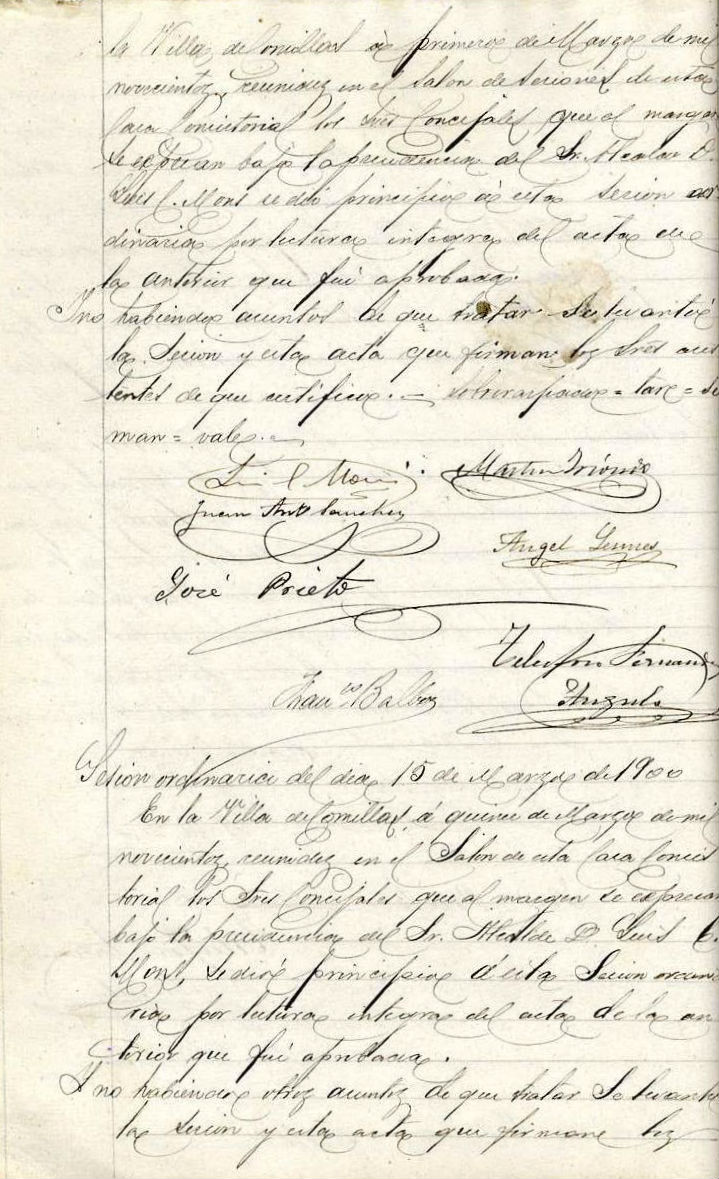 la Villa de Comillas á primero de Marzo de mil
novecientos, reunidos en el Salon de sesiones de esta
Casa Consistorial los Sres Concejales que al margen
se expresan bajo la presidencia del Sr. Alcalde D.
Luis C. Mons se dió principio á esta sesion or-
dinaria por lectura integra del acta de
la anterior que fué aprobada.
Y no habiendo asuntos de que tratar se levantó
la Sesion y esta acta que firman los Sres asis
tentes de que certifico.— sobrerraspado = tar = se
man = vale.—
Luis C Mons Martin
Juan Ant Sanchez
Angel
José Prieto
Telesforo Fernandez
Fran.co Balbos
Sesion ordinaria del dia 15 de Marzo de 1900
En la Villa de Comillas, á quince de Marzo de mil
novecientos, reunidos en el Salon de esta Casa Consis
torial los Sres Concejales que al margen se expresan
bajo la presidencia del Sr. Alcalde D. Luis C.
Mons, se dió principio á esta Sesion ordina
ria por lectura integra del acta de la an
terior que fué aprobada.
Y no habiendo otros asuntos de que tratar Se levantó
la sesion y esta acta que firman los